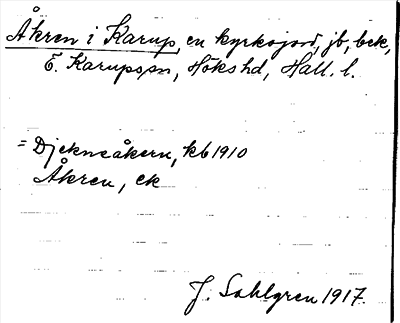 Åkren i Karup, en kyrkojord, jb, bek,
E. Karups sn, Höks hd, Hall. l.
= Djekneåkern, kb 1910
Åkren, ek
J. Sahlgren 1917.